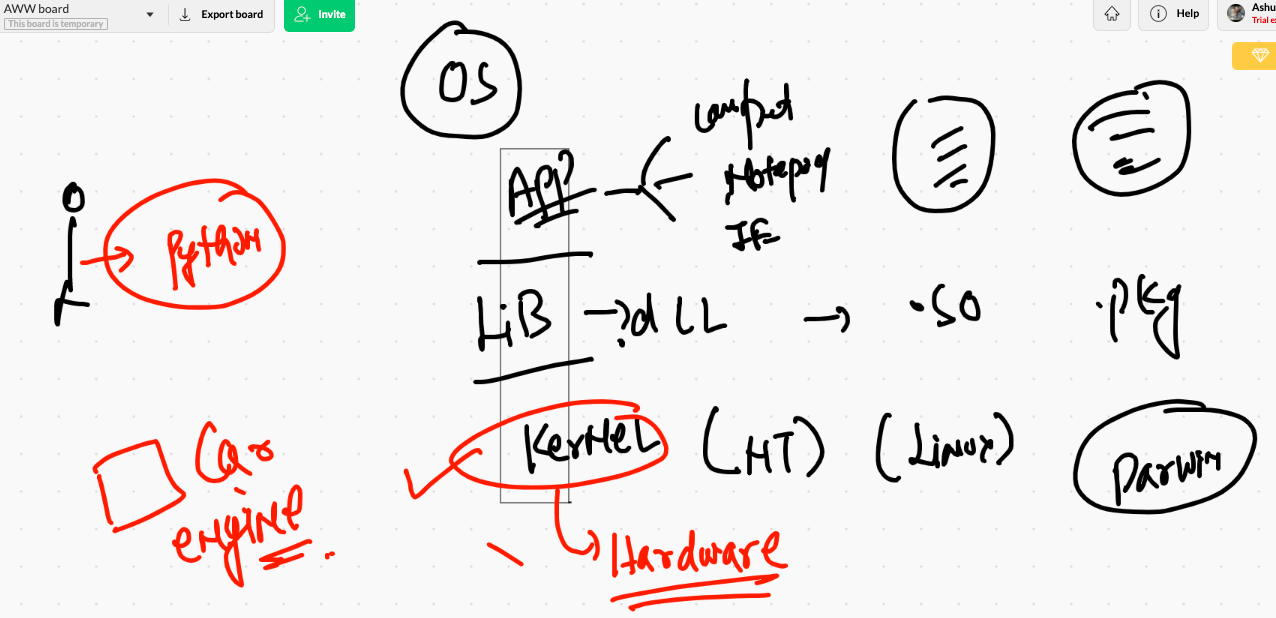 AWW board
This board is temporary
Export board
Invite
Help
Ashu
Trial ex
OS
APP
Notepad
IE
Python
LiB → .dLL → .SO .pKg
KerNeL (NT) (Linux) Darwin
Car
engine
Hardware